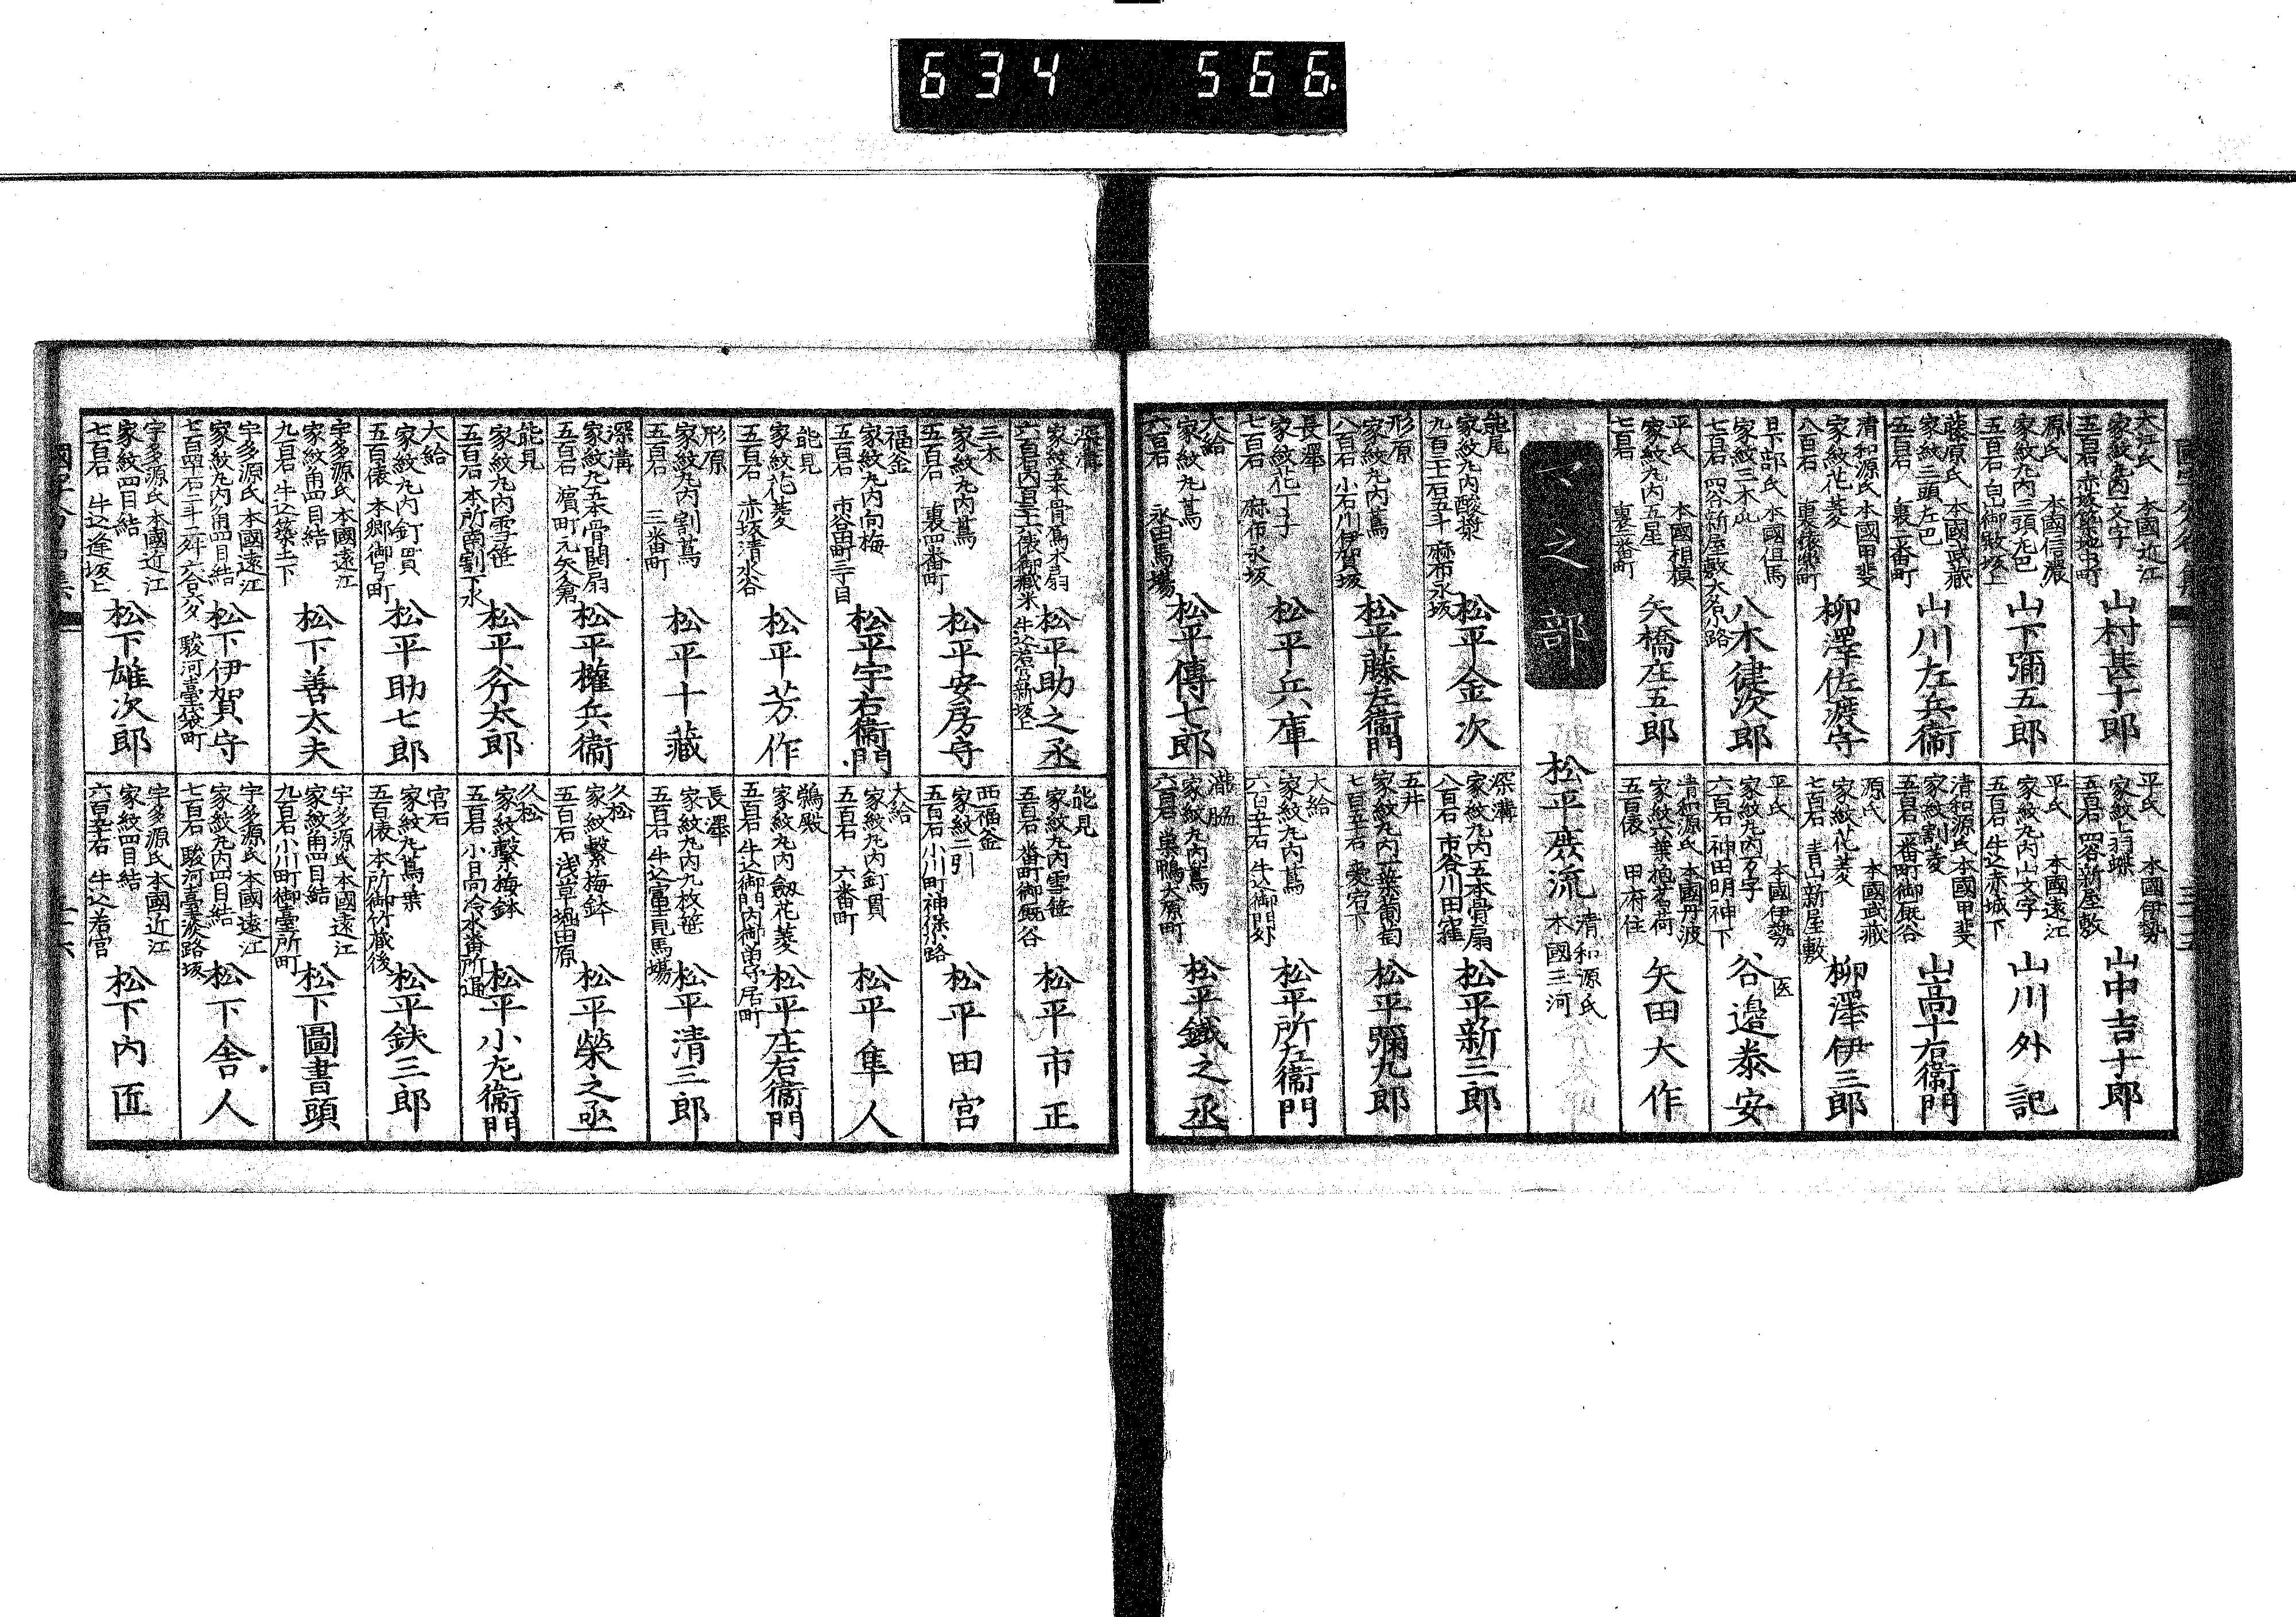 634 566.
大江氏 本國近江
家紋丸内一文字
五百石 赤坂築地中町
山村甚十郎
源氏 本國信濃
家紋丸内三頭左巴
五百石 白山御殿坂上
山下彌五郎
藤原氏 本國武藏
家紋三頭左巴
五百石 裏二番町
山川左兵衞
清和源氏 本國甲斐
家紋花菱
八百石
柳澤佐渡守
日下部氏 本國但馬
家紋三木瓜
七百石 四谷新屋敷大名小路
八木律次郎
平氏 本國相模
家紋丸内五星
七百石 裏二番町
矢橋庄五郎
平氏 本國伊勢
五百石 四谷新屋敷
山中吉十郎
平氏 本國遠江
家紋丸内山文字
五百石 牛込赤城下
山川外記
清和源氏 本國甲斐
家紋割菱
五百石 一番町御厩谷
山高十右衞門
源氏 本國武藏
家紋花菱
七百石 青山新屋敷
柳澤伊三郎
平氏 本國伊勢
家紋丸内万字
六百石 神田明神下
医
谷邉泰安
清和源氏 本國丹波
家紋六葉抱茗荷
五百俵 甲府住
矢田大作
マ之部
松平庶流 清和源氏
本國三河
能見
家紋丸内酸漿
麻布永坂
松平金次
形原
家紋丸内蔦
八百石 小石川伊賀坂
松平藤左衞門
長澤
家紋花丁子
七百石 麻布永坂
松平兵庫
大給
家紋丸蔦
六百石 永田馬場
松平傳七郎
深溝
家紋丸内五本骨扇
八百石 市谷川田窪
松平新三郎
五井
家紋丸内一葉葡萄
七百五十石 愛宕下
松平彌九郎
大給
家紋丸内蔦
六百五十石 牛込御門外
松平所左衞門
瀧脇
家紋丸内蔦
六百石 巣鴨大原町
松平鐵之丞
深溝
牛込若宮新坂上
松平助之丞
三木
家紋丸内蔦
五百石 裏四番町
松平安房守
福釜
家紋丸内向梅
五百石 市谷田町三丁目
松平宇右衞門
能見
家紋花菱
五百石 赤坂清水谷
松平芳作
形原
家紋丸内割蔦
五百石 三番町
松平十藏
深溝
家紋丸五本骨開扇
五百石 濱町元矢ノ倉
松平權兵衞
能見
家紋丸内雪笹
五百石 本所南割下水
松平斧太郎
大給
家紋丸内釘貫
五百俵 本郷御弓町
松平助七郎
宇多源氏 本國遠江
家紋角四目結
九百石 牛込築土下
松下善太夫
宇多源氏 本國遠江
家紋丸内角四目結
駿河臺袋町
松下伊賀守
宇多源氏 本國近江
家紋四目結
七百石 牛込逢坂上
松下雄次郎
能見
家紋丸内雪笹
五百石 一番町御厩谷
松平市正
西福釜
家紋二引
五百石 小川町神保小路
松平田宮
大給
家紋丸内釘貫
五百石 六番町
松平隼人
鵜殿
家紋丸内劔花菱
五百石 牛込御門内御留守居町
松平庄右衞門
長澤
家紋丸内九枚笹
五百石 牛込富士見馬場
松平清三郎
久松
家紋繋梅鉢
五百石 浅草堀田原
松平榮之亟
久松
家紋繋梅鉢
五百石 小日向冷水番所通
松平小左衞門
宮石
家紋丸蔦葉
五百俵 本所御竹藏後
松平鉄三郎
宇多源氏 本國遠江
家紋角四目結
九百石 小川町御臺所町
松下圖書頭
宇多源氏 本國遠江
家紋丸内四目結
七百石 駿河臺淡路坂
松下舎人
宇多源氏 本國近江
家紋四目結
六百五十石 牛込若宮
松下内匠